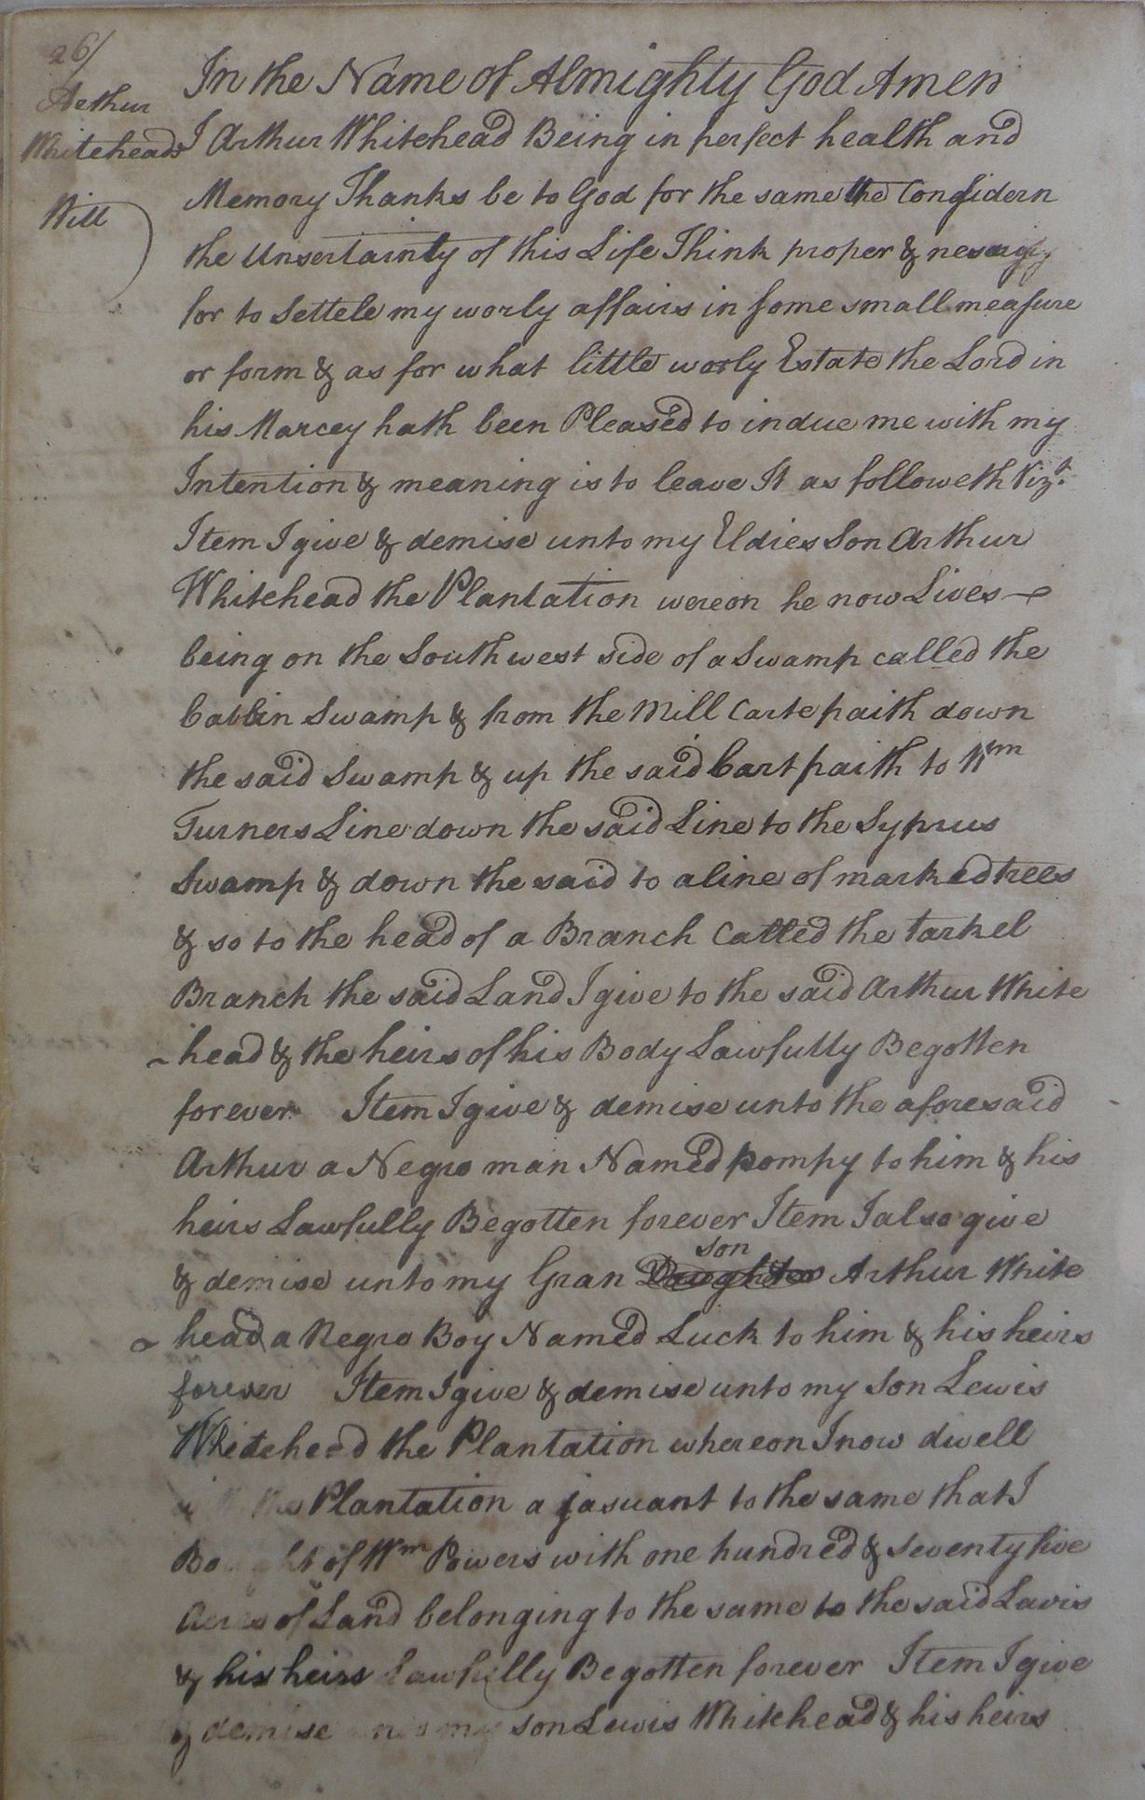 26/
Arthur
Whiteheads
Will
In the Name of Almighty God Amen
I Arthur Whitehead Being in perfect health and
Memory Thanks be to God for the same the Considern
the Unsertainty of this Life Think proper &
for to Settele my worly affairs in some small measure
or form & as for what little worly Estate the Lord in
his Marcey hath been Pleased to indue me with my
Intention & meaning is to leave It as followeth Vizt.
Item I give & demise unto my Eldies Son Arthur
Whitehead the Plantation wereon he now Lives —
being on the South west side of a Swamp called the
Cabbin Swamp & from the Mill Carte paith down
the said Swamp & up the said Cart paith to Wm
Turners Line down the said Line to the Syprus
Swamp & down the said to a line of marked trees
& so to the head of a Branch Called the Tarkel
Branch the said Land I give to the said Arthur White
~ head & the heirs of his Body Lawfully Begotten
forever Item I give & demise unto the aforesaid
Arthur a Negro man Named pompy to him & his
heirs Lawfully Begotten forever Item I also give
& demise unto my Gran Daughter son Arthur White
~ head a Negro Boy Named Luck to him & his heirs
forever Item I give & demise unto my Son Lewis
Whitehead the Plantation whereon I now dwell
the Plantation a jasuant to the same that I
Bought of Wm Powers with one hundred & seventy five
Acres of Land belonging to the same to the said Lewis
& his heirs Lawfully Begotten forever Item I give
& demise unto my son Lewis Whitehead & his heirs